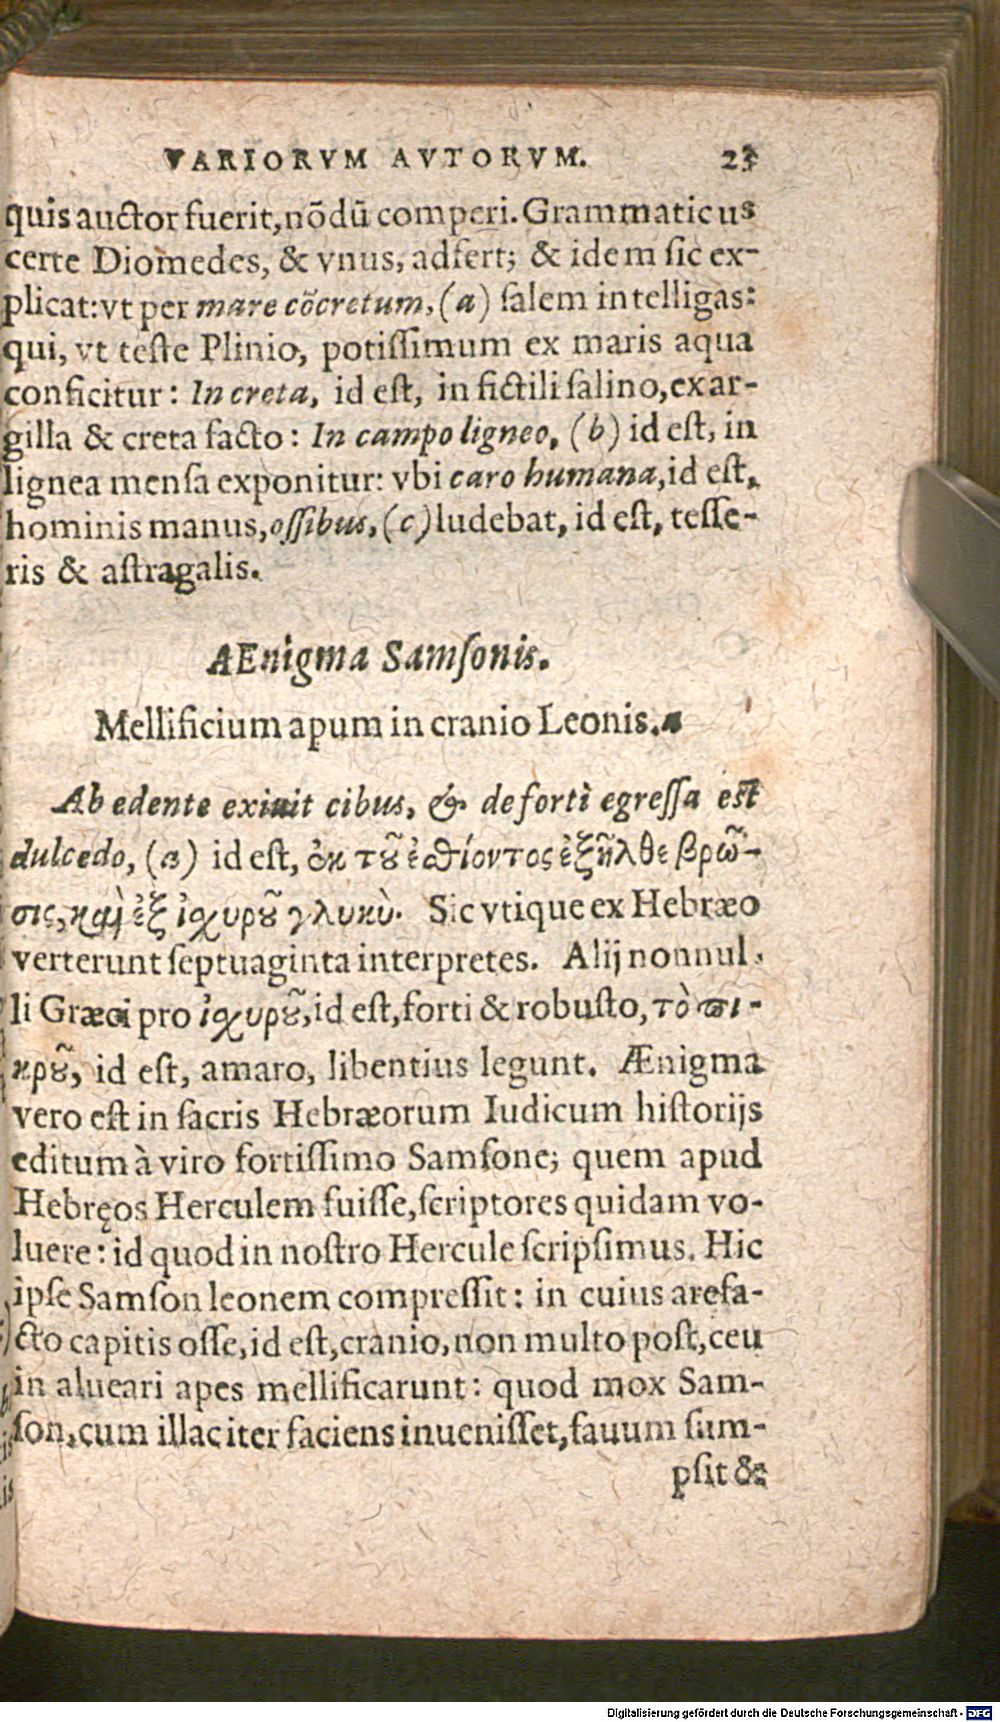 VARIORVM AVTORVM. 23
quis auctor fuerit, nōdū comperi. Grammaticus
certe Diomedes, & vnus, adfert; & idem sic ex-
plicat: vt per mare cōcretum, (a) salem intelligas:
qui, vt teste Plinio, potissimum ex maris aqua
conficitur: In creta, id est, in fictili salino, ex ar-
gilla & creta facto: In campo ligneo, (b) id est, in
lignea mensa exponitur: vbi caro humana, id est,
hominis manus, ossibus, (c) ludebat, id est, tesse-
ris & astragalis.
AEnigma Samsonis.
Mellificium apum in cranio Leonis.
Ab edente exiuit cibus, & de forti egressa est
dulcedo, (a) id est, ἐκ τοῦ ἐσθίοντος ἐξῆλθε βρῶ-
σις, καὶ ἐξ ἰσχυροῦ γλυκὺ. Sic vtique ex Hebræo
verterunt septuaginta interpretes. Alij nonnul-
li Græci pro ἰσχυροῦ, id est, forti & robusto, τὸ πι-
κροῦ, id est, amaro, libentius legunt. Ænigma
vero est in sacris Hebræorum Iudicum historijs
editum à viro fortissimo Samsone; quem apud
Hebręos Herculem fuisse, scriptores quidam vo-
luere: id quod in nostro Hercule scripsimus. Hic
ipse Samson leonem compressit: in cuius arefa-
cto capitis osse, id est, cranio, non multo post, ceu
in alueari apes mellificarunt: quod mox Sam-
son, cum illac iter faciens inuenisset, fauum sum-
psit &
Digitalisierung gefördert durch die Deutsche Forschungsgemeinschaft - DFG